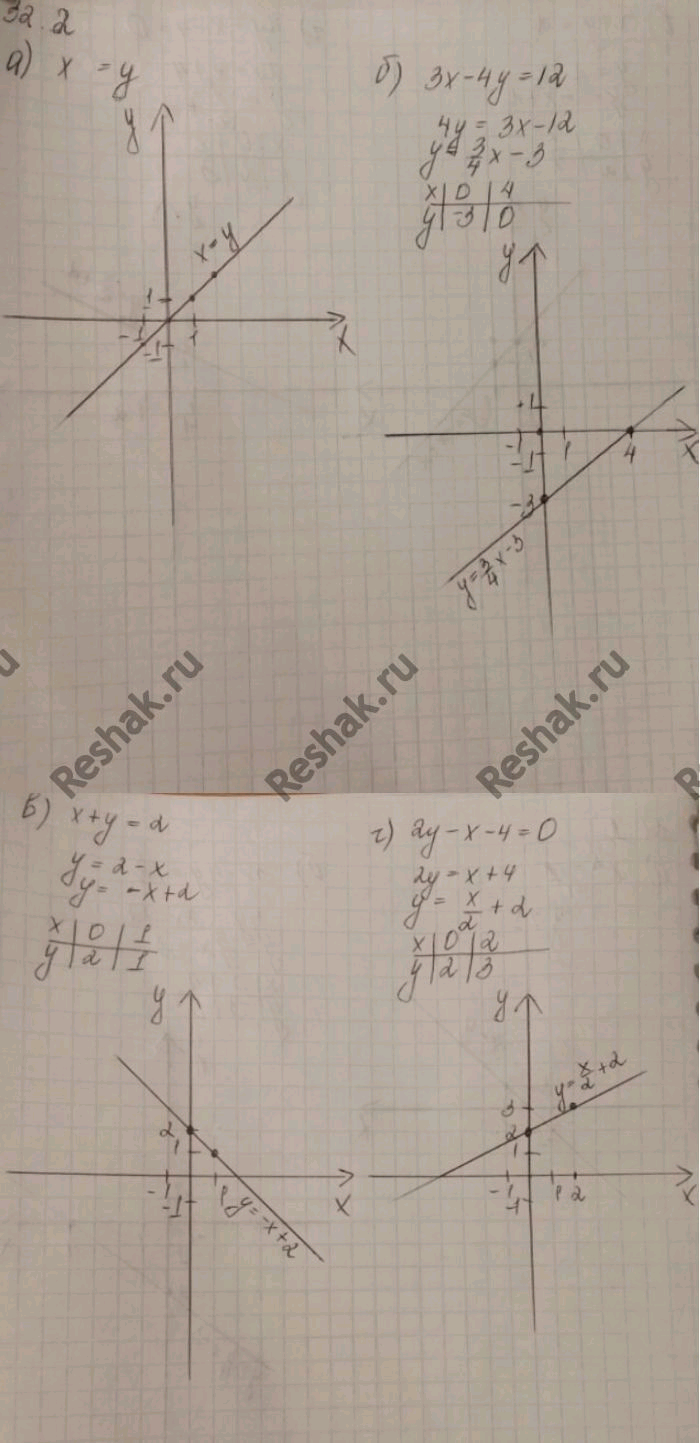 32.2
а) x = y
y
x = y
1
-1 1
-1
x
б) 3x-4y=12
4y = 3x-12
y = 3/4 x - 3
x | 0 | 4
y | -3 | 0
y
+1
-1 1 4 x
-1
-3
y = 3/4 x - 3
Reshak.ru
Reshak.ru
Reshak.ru
Б) x+y=2
y = 2-x
y = -x+2
x | 0 | 1
y | 2 | 1
y
2
1
-1 1
-1
x
y=-x+2
г) 2y-x-4=0
2y = x+4
y = x/2 + 2
x | 0 | 2
y | 2 | 3
y
y = x/2 + 2
3
2
1
-1 1 2 x
-1